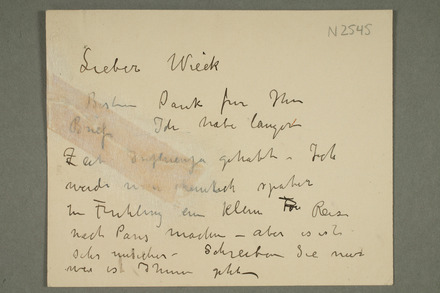 N2545
Lieber Wieck
Besten Dank für Ihren
Brief Ich habe längere
Zeit Influenza gehabt – Ich
werde nun später
im Frühling eine kleine Reise
nach Paris machen – aber es ist
sehr unsicher – Schreiben Sie mir
wie es Ihnen geht